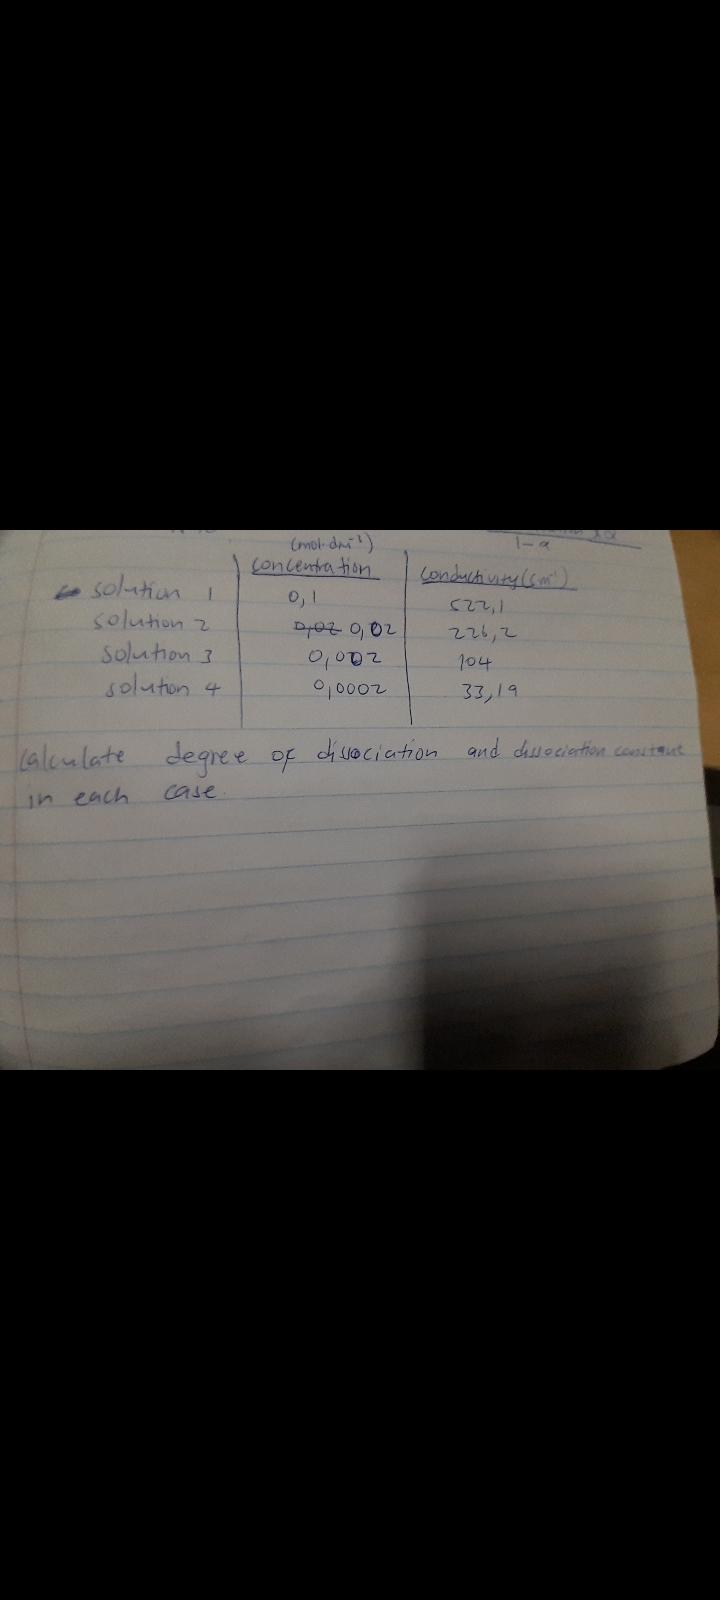 (mol·dm⁻¹)
1-α
concentration conductivity (Sm⁻¹)
solution 1 0,1 522,1
solution 2 0,02 0,02 226,2
solution 3 0,002 104
solution 4 0,0002 33,19
Calculate degree of dissociation and dissociation constant
in each case.